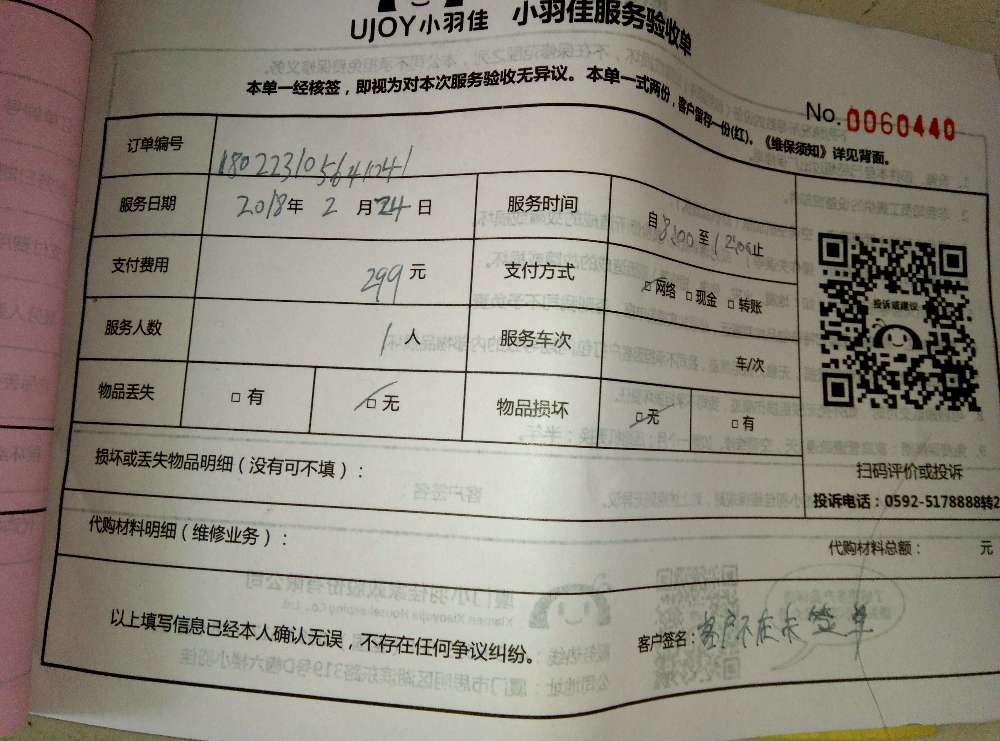 UJOY小羽佳 小羽佳服务验收单
本单一经核签，即视为对本次服务验收无异议。本单一式两份，客户留存一份(红)。《维保须知》详见背面。
No. 0060440
订单编号
服务日期 2018年 2 月 24 日 服务时间 自8:00至12:00止
支付费用 299元 支付方式 □网络 □现金 □转账
服务人数 1 人 服务车次 车/次
物品丢失 □有 □无 物品损坏 □无 □有
投诉或建议
扫码评价或投诉
投诉电话：0592-5178888转2
损坏或丢失物品明细（没有可不填）：
代购材料明细（维修业务）：
代购材料总额： 元
以上填写信息已经本人确认无误，不存在任何争议纠纷。 客户签名：客户不在未签单